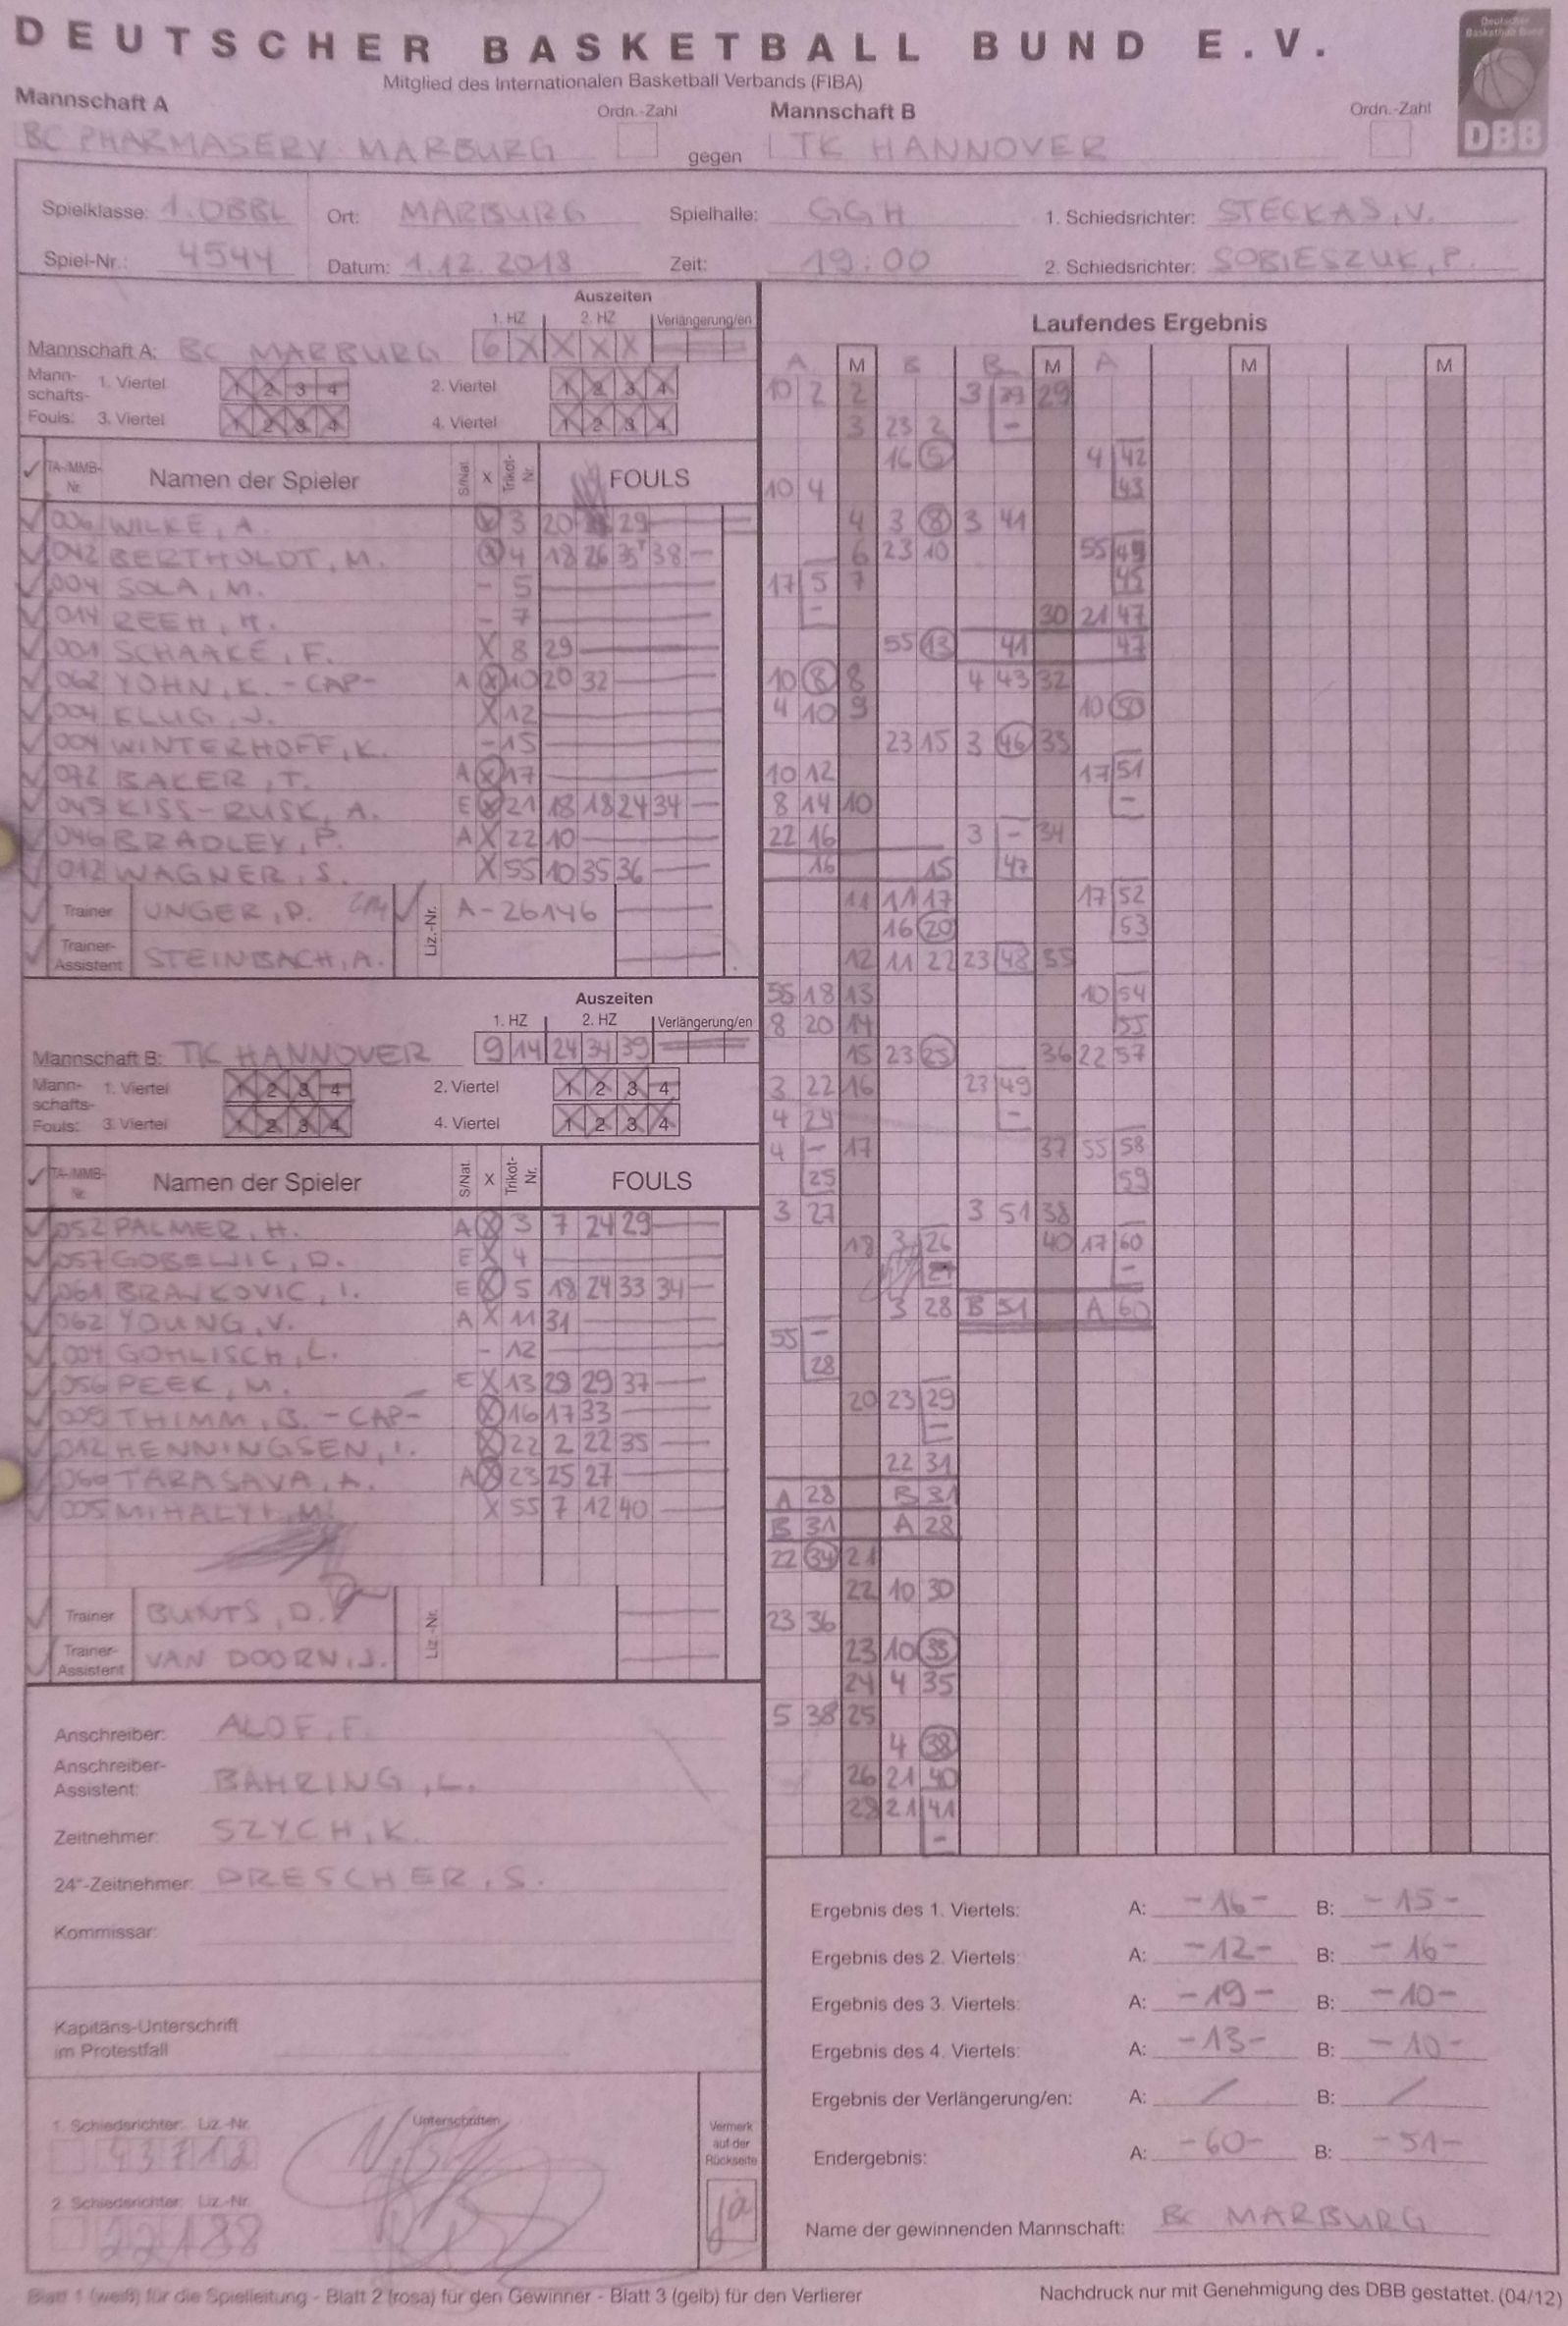 DEUTSCHER BASKETBALL BUND E.V.
Mitglied des Internationalen Basketball Verbands (FIBA)
Deutscher Basketball Bund
DBB
Mannschaft A Ordn.-Zahl Mannschaft B Ordn.-Zahl
BC PHARMASERV MARBURG gegen TK HANNOVER
Spielklasse: 1. DBBL Ort: MARBURG Spielhalle: GGH 1. Schiedsrichter: STECKAS, V.
Spiel-Nr.: 4544 Datum: 1.12.2018 Zeit: 19:00 2. Schiedsrichter: SOBIESZUK, P.
Auszeiten
1. HZ 2. HZ Verlängerung/en
Mannschaft A: BC MARBURG 6 X X X X
Mann-schafts-Fouls: 1. Viertel 1 2 3 4 2. Viertel 1 2 3 4
3. Viertel 1 2 3 4 4. Viertel 1 2 3 4
TA-/MMB-Nr. Namen der Spieler S/Nat. X Trikot-Nr. FOULS
WILKE, A. X 3 20 29
042 BERTHOLDT, M. X 4 18 26 35 38
004 SOLA, M. - 5
014 REEH, - 7
001 SCHAAKE, F. X 8 29
062 YOHN, K. -CAP- A X 10 20 32
004 KLUG, J. X 12
004 WINTERHOFF, K. - 15
072 BAKER, T. A X 17
045 KISS-RUSK, A. E X 21 18 18 24 34
046 BRADLEY, P. A X 22 10
012 WAGNER, S. X 55 10 35 36
Trainer UNGER, P. Liz.-Nr. A-26146
Trainer-Assistent STEINBACH, A.
Auszeiten
1. HZ 2. HZ Verlängerung/en
Mannschaft B: TK HANNOVER 9 14 24 34 39
Mann-schafts-Fouls: 1. Viertel 1 2 3 4 2. Viertel 1 2 3 4
3. Viertel 1 2 3 4 4. Viertel 1 2 3 4
TA-/MMB-Nr. Namen der Spieler S/Nat. X Trikot-Nr. FOULS
052 PALMER, H. A X 3 7 24 29
057 GOBELJIC, D. E X 4
061 BRANKOVIC, I. E X 5 18 24 33 34
062 YOUNG, V. A X 11 31
004 GOHLISCH, L. - 12
056 PEEK, M. E X 13 28 29 37
009 THIMM, B. -CAP- X 16 17 33
012 HENNINGSEN, I. X 22 2 22 35
060 TARASAVA, A. A X 23 25 27
005 MIHALYI, M. X 55 7 12 40
Trainer BUNTS, D. Liz.-Nr.
Trainer-Assistent VAN DOORN, J.
Anschreiber: ALOE, F.
Anschreiber-Assistent: BÄHRING, L.
Zeitnehmer: SZYCH, K.
24"-Zeitnehmer: DRESCHER, S.
Kommissar:
Kapitäns-Unterschrift im Protestfall
1. Schiedsrichter: Liz.-Nr. 43712 Unterschriften
2. Schiedsrichter: Liz.-Nr. 22188
Vermerk auf der Rückseite
ja
Laufendes Ergebnis
A M B B M A M M
10 2 2 3 39 29
3 23 2 -
16 5 4 42
10 4 43
4 3 8 3 41
6 23 10 55 45
17 5 7 45
- 30 21 47
55 13 41 47
10 8 8 4 43 32
4 10 9 10 50
23 15 3 46 33
10 12 17 51
8 14 10 -
22 16 3 - 34
16 15 47
11 11 17 17 52
16 20 53
12 11 22 23 48 35
55 18 13 10 54
8 20 14 55
15 23 25 36 22 57
3 22 16 23 49
4 24 -
4 - 17 37 55 58
25 59
3 27 3 51 38
18 3 26 40 17 60
27 -
3 28 B 51 A 60
55 -
28
20 23 29
-
22 31
A 28 B 31
B 31 A 28
22 34 21
22 10 30
23 36
23 10 33
24 4 35
5 38 25
4 38
26 21 40
28 21 41
-
Ergebnis des 1. Viertels: A: -16- B: -15-
Ergebnis des 2. Viertels: A: -12- B: -16-
Ergebnis des 3. Viertels: A: -19- B: -10-
Ergebnis des 4. Viertels: A: -13- B: -10-
Ergebnis der Verlängerung/en: A: / B: /
Endergebnis: A: -60- B: -51-
Name der gewinnenden Mannschaft: BC MARBURG
Blatt 1 (weiß) für die Spielleitung - Blatt 2 (rosa) für den Gewinner - Blatt 3 (gelb) für den Verlierer
Nachdruck nur mit Genehmigung des DBB gestattet. (04/12)